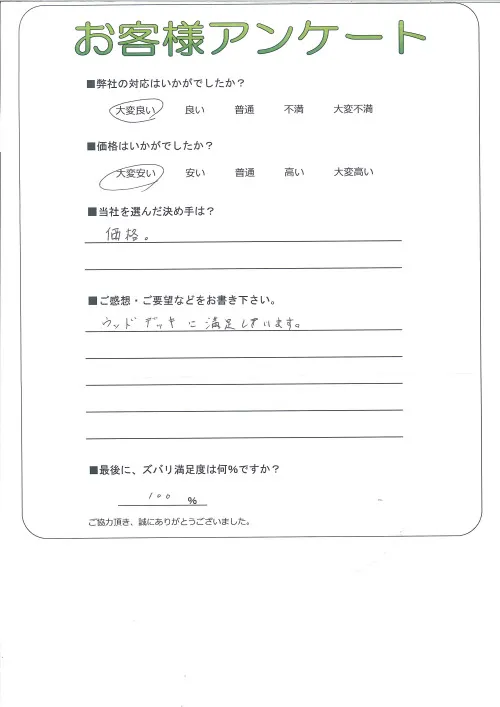 お客様アンケート
■弊社の対応はいかがでしたか？
大変良い 良い 普通 不満 大変不満
■価格はいかがでしたか？
大変安い 安い 普通 高い 大変高い
■当社を選んだ決め手は？
価格。
■ご感想・ご要望などをお書き下さい。
ウッドデッキに満足しています。
■最後に、ズバリ満足度は何%ですか？
100 %
ご協力頂き、誠にありがとうございました。